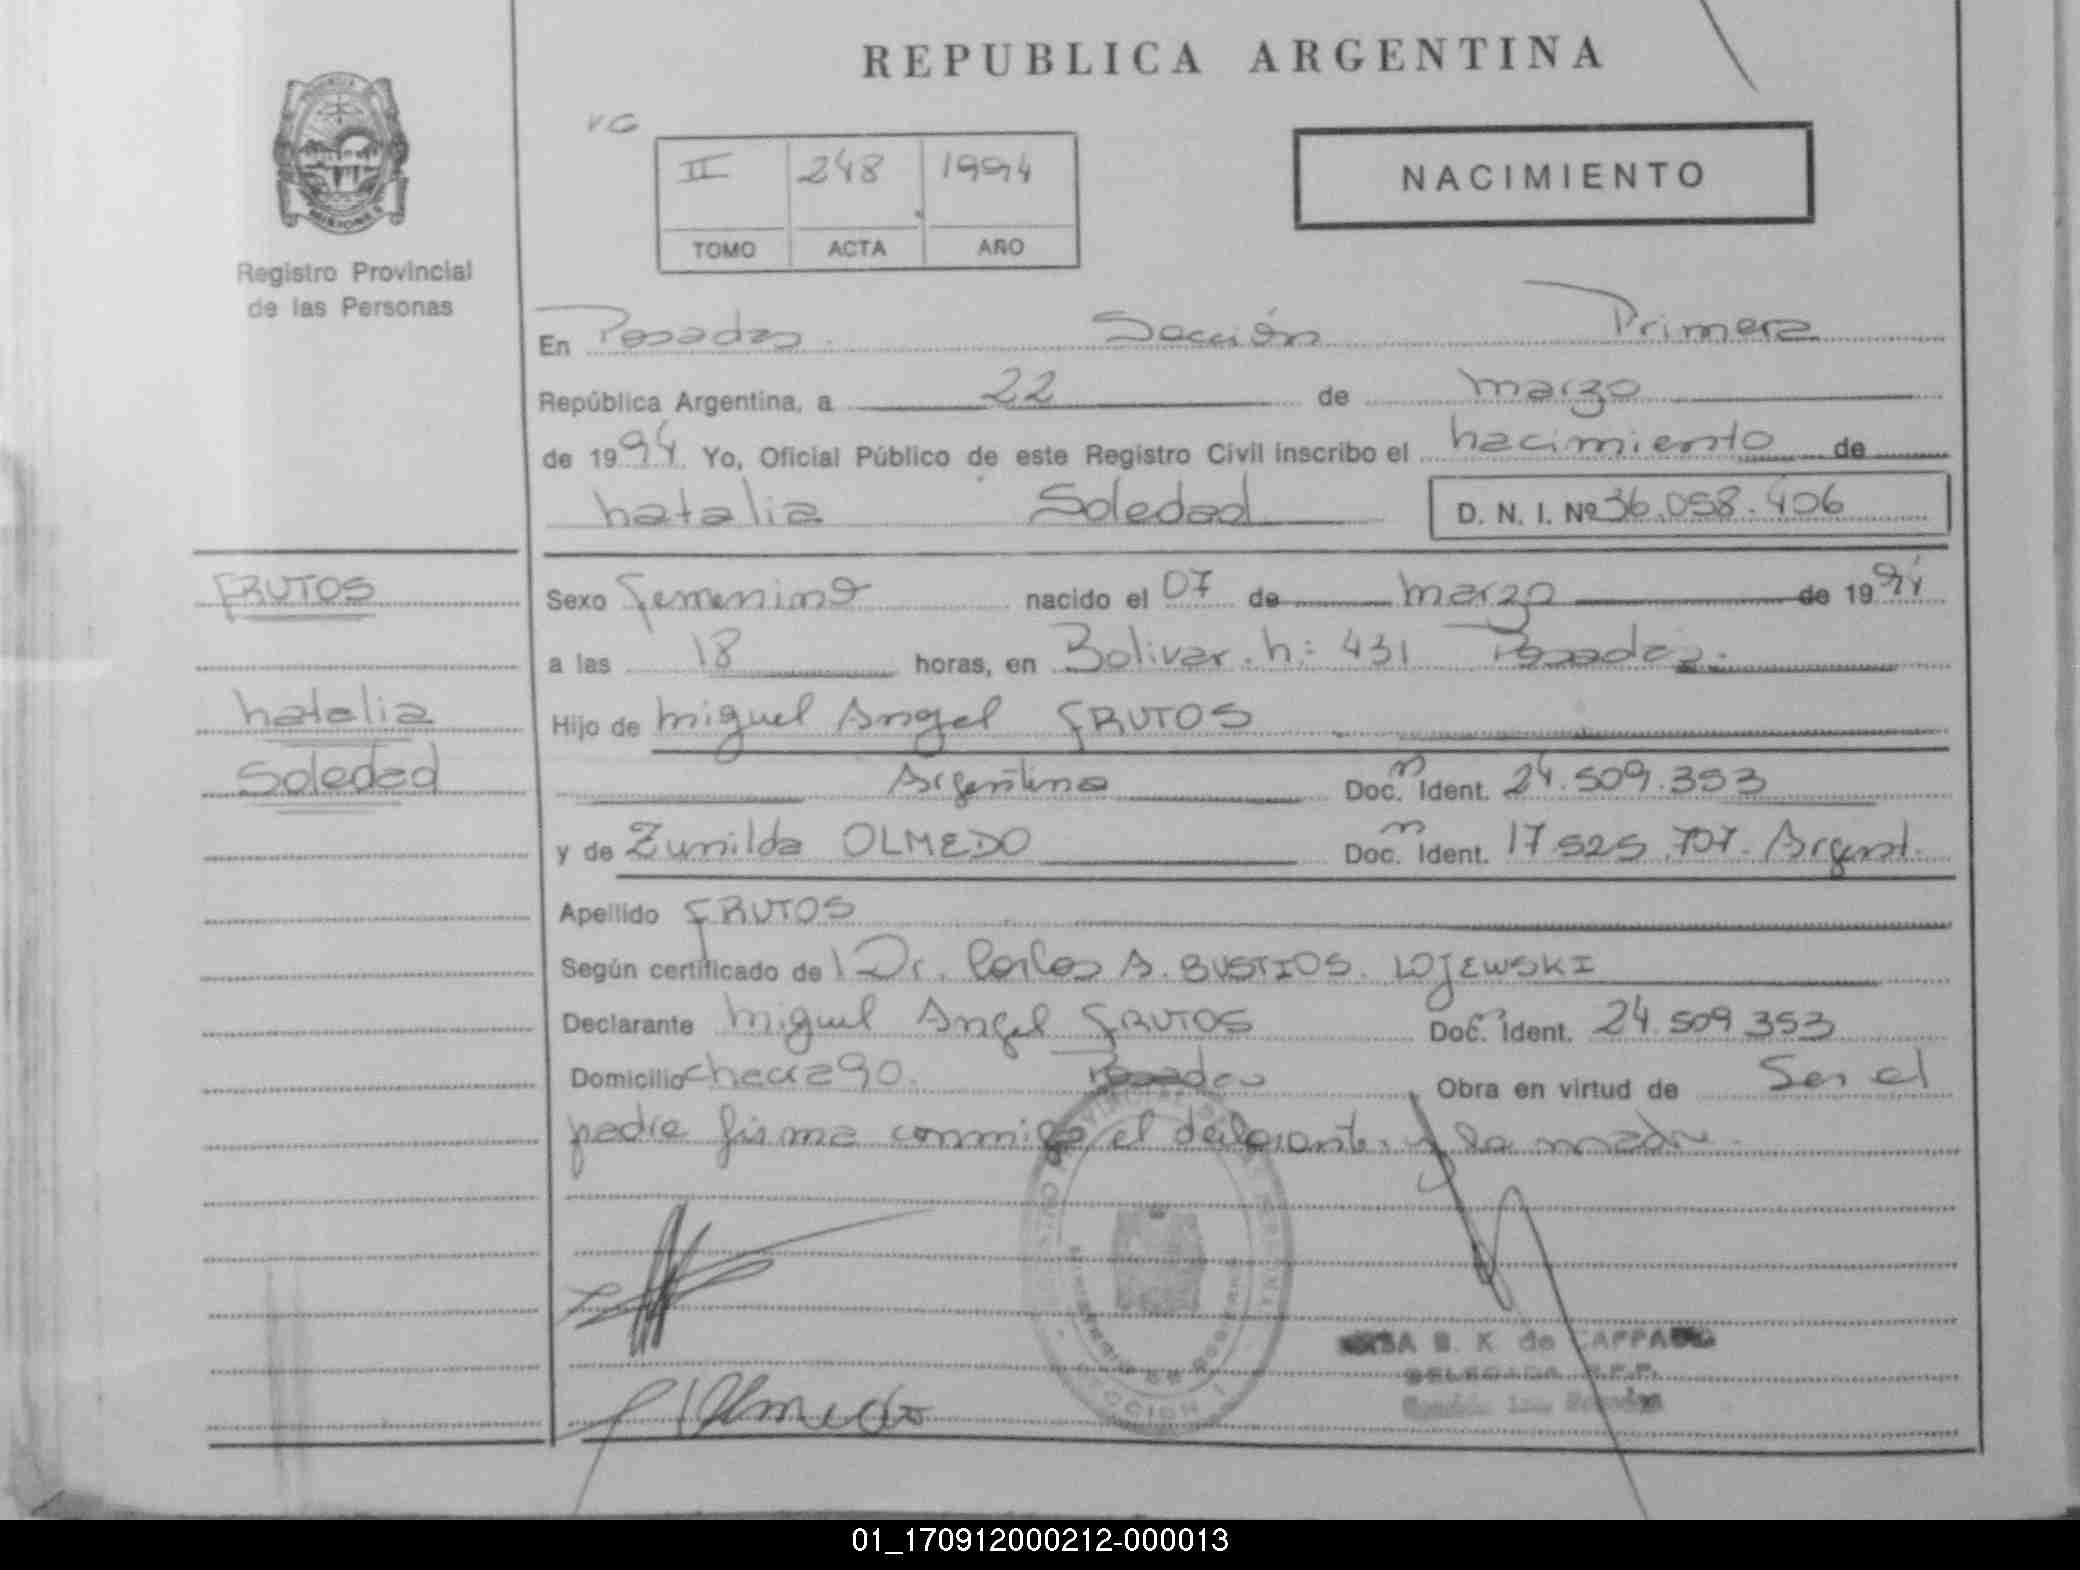 REPUBLICA ARGENTINA
VG
II 248 1994
TOMO ACTA AÑO
NACIMIENTO
PROVINCIA DE
MISIONES
Registro Provincial
de las Personas
En Posadas Sección Primera
República Argentina, a 22 de marzo
de 1994 Yo, Oficial Público de este Registro Civil inscribo el nacimiento de
Natalia Soledad D. N. I. Nº 36.058.406
FRUTOS
Natalia
Soledad
Sexo Femenino nacido el 07 de marzo de 1994
a las 18 horas, en Bolivar. N: 431 Posadas.
Hijo de Miguel Angel FRUTOS
Argentino Doc. Ident. 24.509.353
y de Zunilda OLMEDO Doc. Ident. 17.525.707. Argent.
Apellido FRUTOS
Según certificado de Dr. Carlos A. BUSTIOS. LOJEWSKI
Declarante Miguel Angel FRUTOS Doc. Ident. 24.509.353
Domicilio chacra 90. Posadas Obra en virtud de Ser el
padre firma conmigo el declarante y la madre.
Olmedo
B. K. de
DELEGADA R.P.P.
01_170912000212-000013